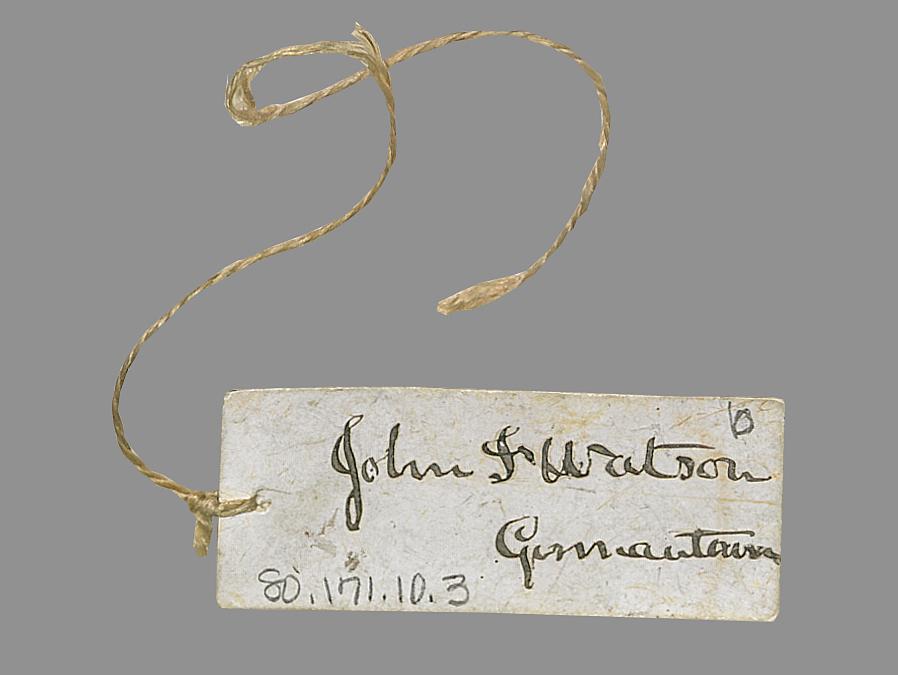 b
John F Watson
Germantown
80.171.10.3